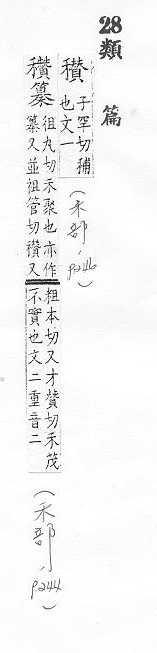 28類篇
穳 子罕切秿
也文一
(禾部, p246)
穳
徂丸切禾聚也亦作
又並祖管切穳又
粗本切又才贊切禾茂
不實也文二重音二
(禾部, p244)